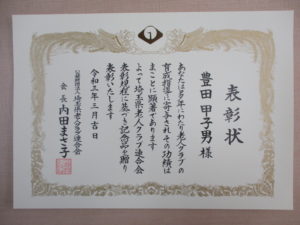 表彰状
豊田 甲子男 様
あなたは多年にわたり老人クラブの
育成指導に寄与されその功績は
まことに顕著であります
よって埼玉県老人クラブ連合会
表彰規程に基づき記念品を贈り
表彰いたします
令和三年三月吉日
公益財団法人埼玉県老人クラブ連合会
会長 内田まさ子